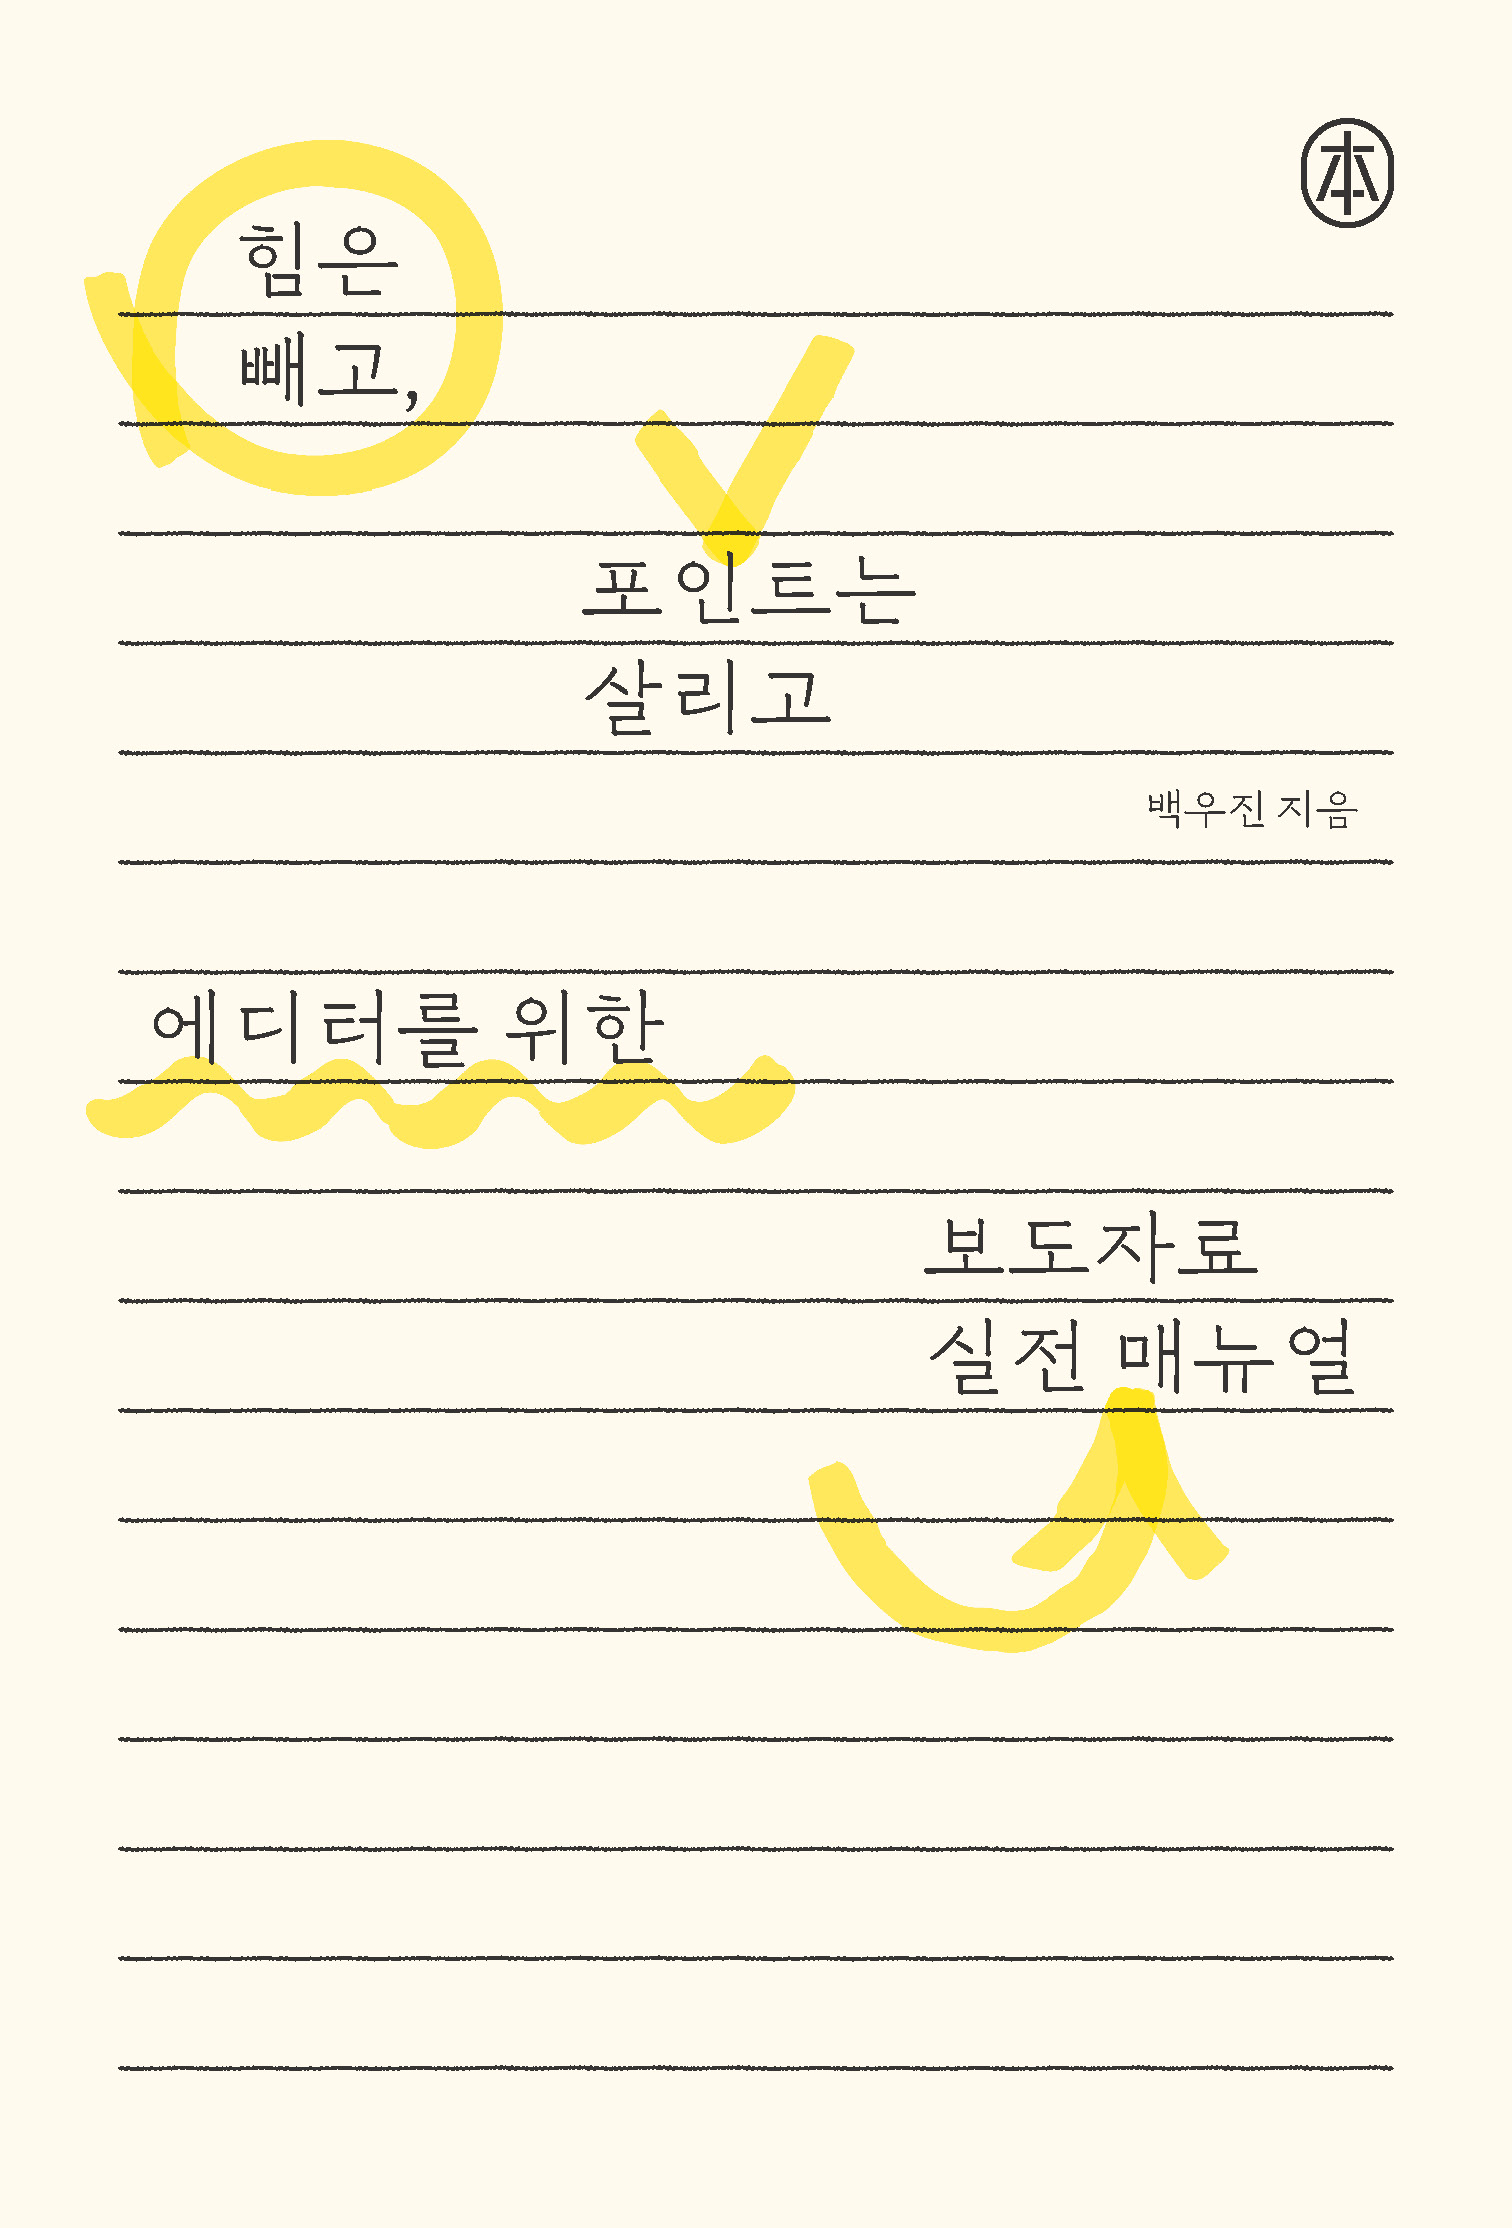 本
힘은
빼고,
포인트는
살리고
백우진 지음
에디터를 위한
보도자료
실전 매뉴얼